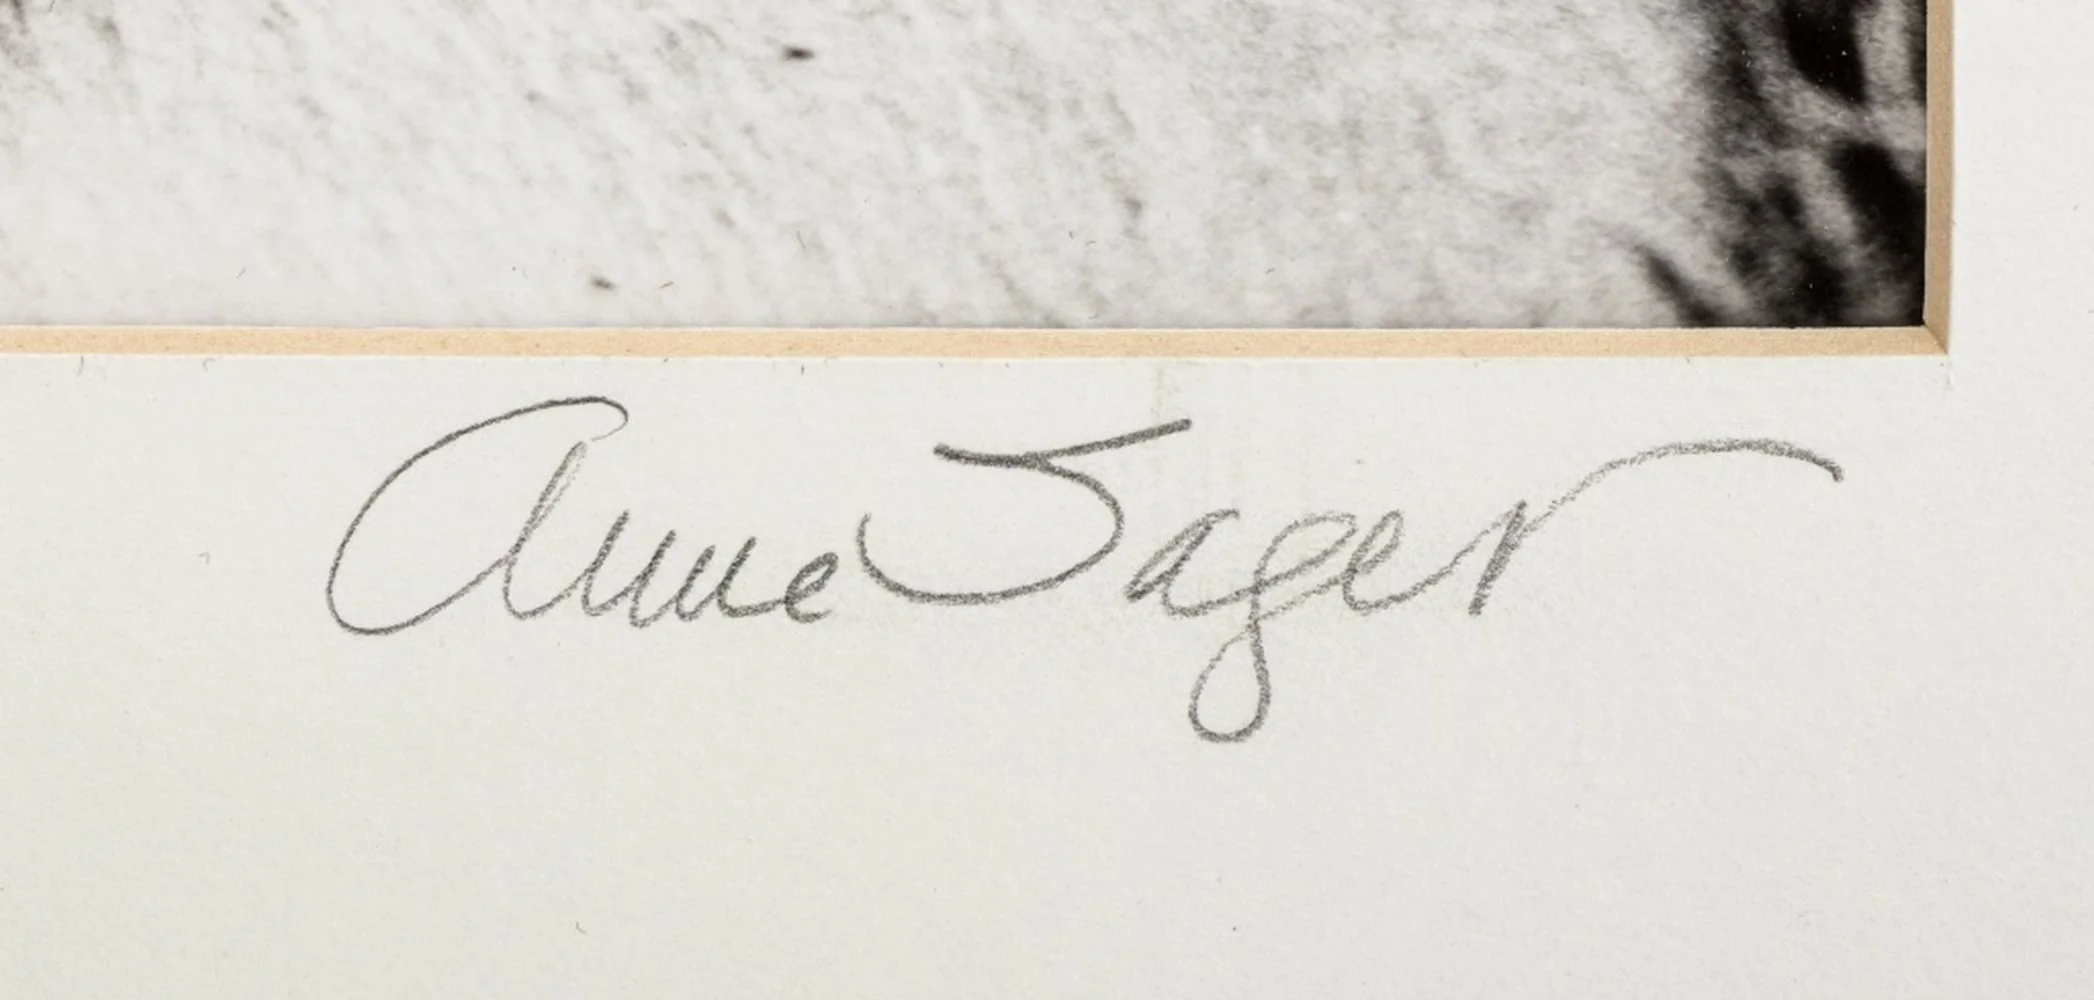 Anne Sager